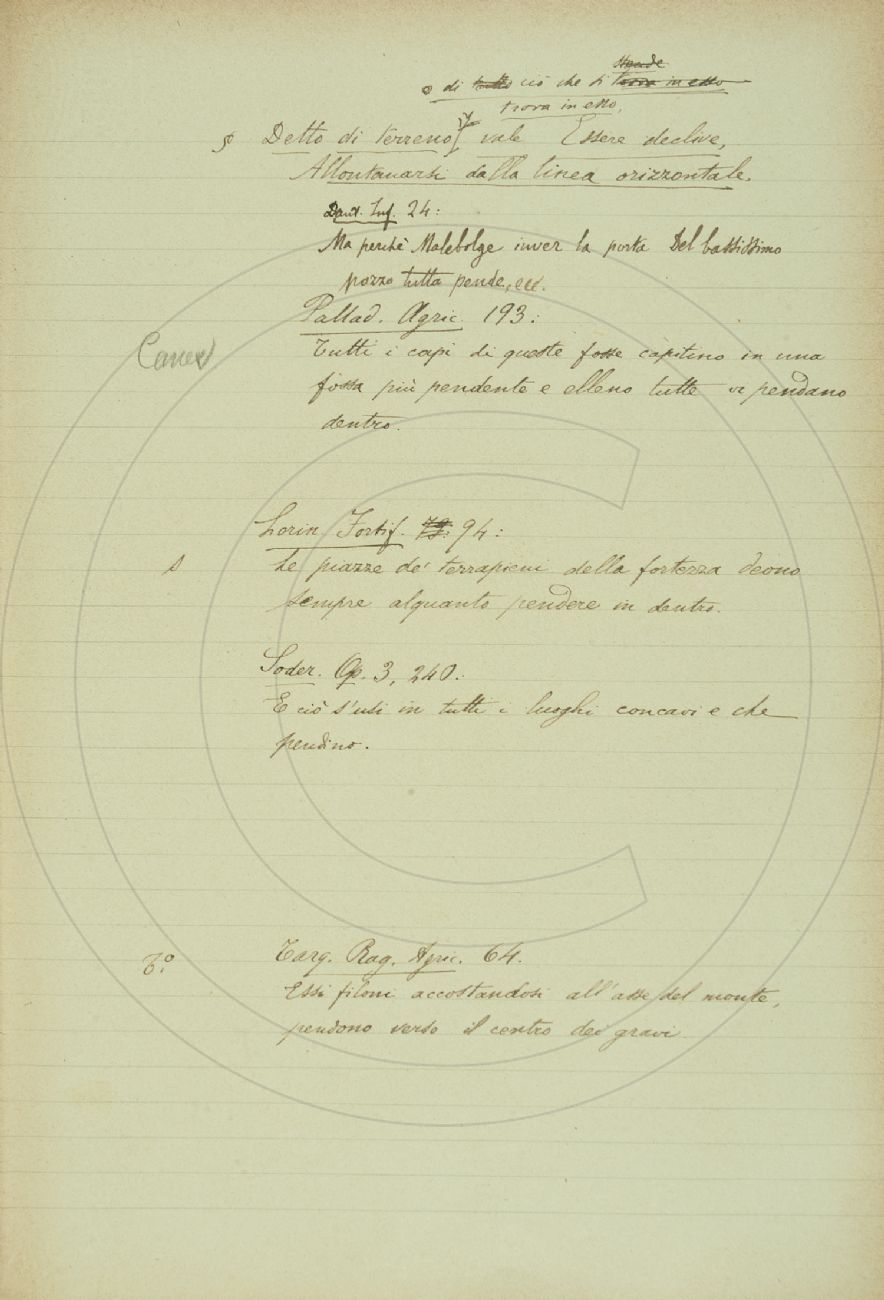 stende
o di tutto ciò che si trova in esso
trova in esso,
§ Detto di terreno vale Essere declive,
Allontanarsi dalla linea orizzontale.
Dant. Inf. 24:
Ma perchè Malebolge inver la porta Del bassissimo
pozzo tutta pende, ecc.
Pallad. Agric. 193:
Tutti i capi di queste fosse capitino in una
fossa più pendente e elleno tutte vi pendano
dentro.
Lorin. Fortif. 94:
Le piazze de' terrapieni della fortezza deono
sempre alquanto pendere in dentro.
Soder. Op. 3, 240.
E ciò s'usi in tutti i luoghi concavi e che
pendino.
T.º Targ. Rag. Agric. 64.
Essi filoni accostandosi all'asse del monte,
pendono verso il centro dei gravi